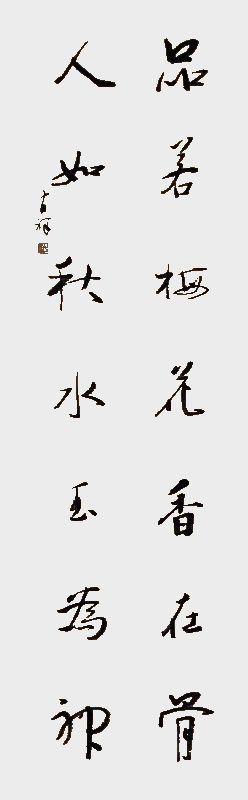 品若梅花香在骨
人如秋水玉為神
吉祥